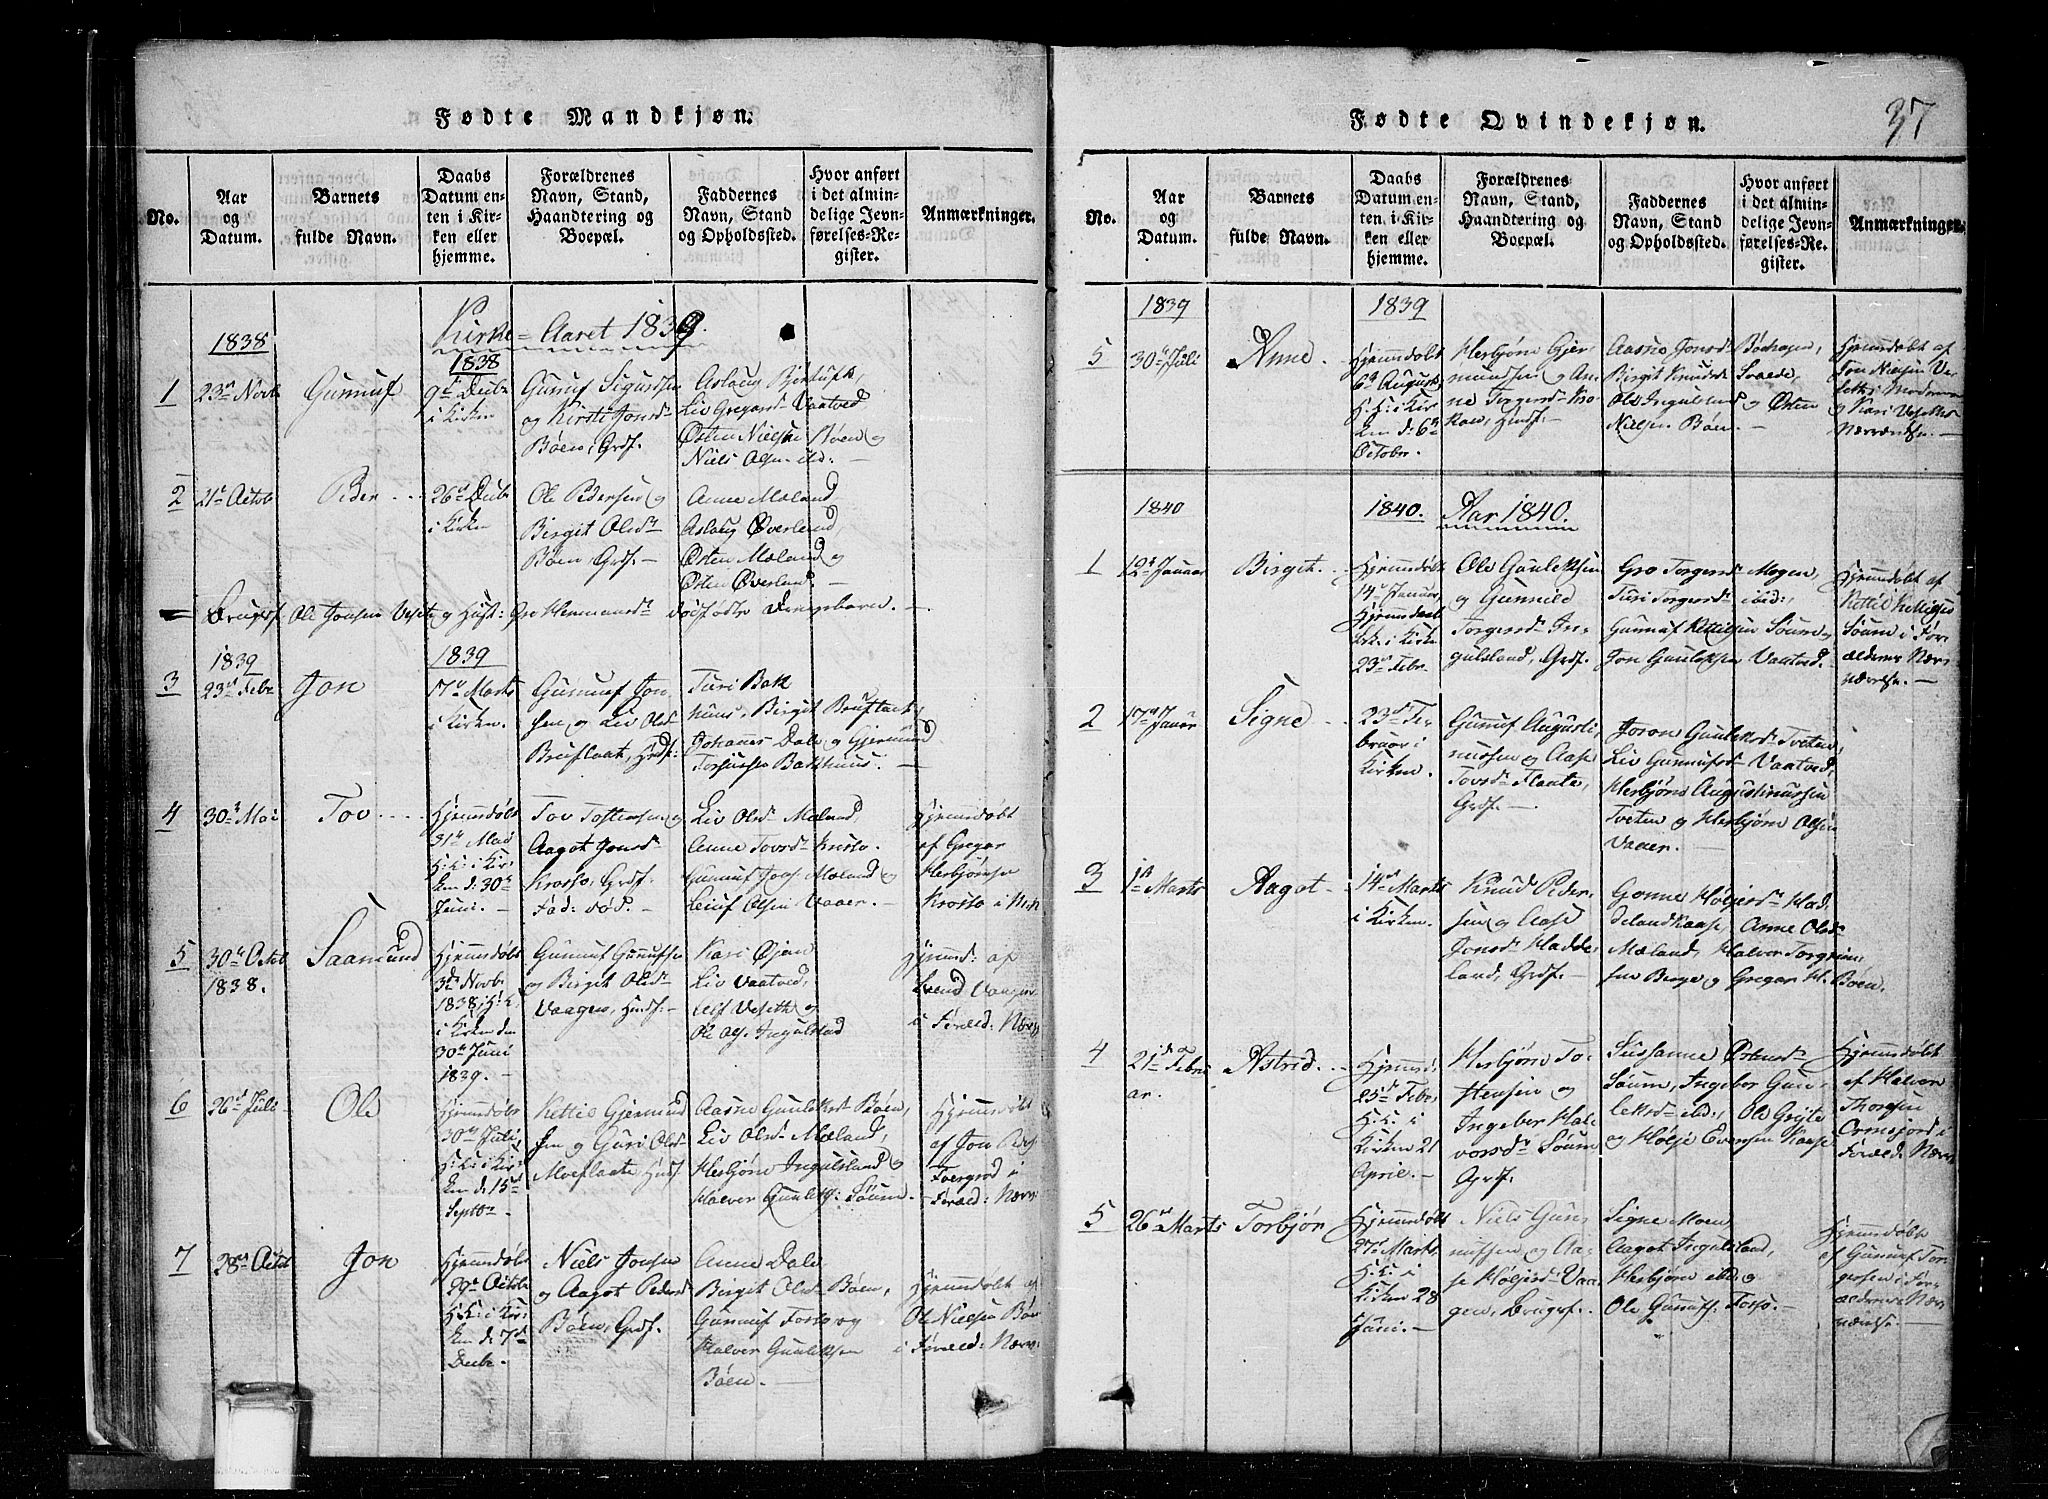 Fødte Mandkjøn.
No.
Aar
og
Datum.
Barnets
fulde Navn.
Daabs
Datum en-
ten i Kir-
ken eller
hjemme.
Forældrenes
Navn, Stand,
Haandtering og
Boepæl.
Faddernes
Navn, Stand
og Opholdssted.
Hvor anført
i det almin-
delige Jevn-
førelses-Re-
gister.
Anmærkninger.
Kirke-Aaret 1839.
1838
1838
1
23de Novbr
Gunnuf
9de Decbr
i Kirken
Gunuf Sigurdsen
og Kirsti Jonsd.
Bøen, Grdf.
Aslaug Bjørtuft,
Liv Gregarsd. Vaatved
Østen Nielsen Bøen og
Niels Olsen ibd. –
2
21de Octob
Peder
26de Decbr
i Kirken
Ole Pedersen og
Birgit Olsd.
Bøen, Grdf. –
Anne Mæland
Aslaug Øverland,
Østen Mæland og
Østen Øverland –
Brugsf. Ole Jonsen Vesete og Hust: Gro Hermansd. dødfødte Drengebarn. –
1839
1839
3
23de Febr
Jon
17de Marts
i Kirken.
Gunnuf Jon-
sen og Liv Olsd.
Bruflaat, Hdsf:
Turi Bak
huus, Birgit Bruflaat,
Johannes Dale og Gjermund
Torsussen Bakhuus. –
4
30te Mai
Tov
Hjemmdøbt
31te Mai
H: K: i Kir-
ken d: 30te
Juni. –
Tov Tostensen og
Aagot Jonsd.
Krosso, Grdf.
Fad: død. –
Liv Olsd. Mæland
Anne Tovsd. Krosso.
Gunnuf Jons. Mæland og
Leiuf Olsen Vaaer. –
Hjemmdøbt
af Gregar
Herbjørnsen
Krosso i
5
30te Octob
1838.
Saamund
Hjemmdøbt
3de Novbr
1838, H: K:
i Kirken den
30te Juni
1839. –
Gunnuf Gunnufsen
og Birgit Olsd.
Vaagen, Husf: –
Kari Øjan
Liv Vaatved,
Leif Veseth og
Ole Ols. Ingulsland
Hjemmd: af
Svend Vaagen
i Foræld: Nærv
6
26de Juli
Ole
Hjemmdøbt
30te Juli,
H: K: i Kir-
ken d: 15de
Septbr
Kettil Gjermund
sen og Guri Olsd.
Moeflaate Husf.
Aasne Gauleksd. Bøen,
Liv Olsd. Mæland,
Herbjørn Ingulsland og
Halver Gauleks: Søum. –
Hjemmdøbt
af Jon
i
Foræld: Nærv
7
28de Octob
Jon
Hjemmdøbt
29de Octobr
H: K: i Kir-
ken d: 7de
Decbr.
Niels Jonsen
og Aagot Pedersd.
Bøen, Grdf.
Anne Dale
Birgit Olsd. Bøen,
Gunnuf Forso og
Halver Gauleksen
Bøen. –
Hjemmdøbt af
Ole Nielsen Bøen
i Foræld: Nærv:
Fødte Qvindekjøn.
37
No.
Aar
og
Datum.
Barnets
fulde Navn.
Daabs
Datum en-
ten i Kir-
ken eller
hjemme.
Forældrenes
Navn, Stand,
Haandtering og
Boepæl.
Faddernes
Navn, Stand
og Opholdssted.
Hvor anført
i det almin-
delige Jevn-
førelses-Re-
gister.
Anmærkninger.
1839
1839
5
30te Juli
Anne
Hjemmdøbt
6te August
H: K: i Kir
ken d: 6te
October
Herbjørn Gjer-
mundsen og An-
ne Torgersd.
Husf: –
Aasne Jonsd. Bøehagen,
Birgit Knudsd. Svaede,
Ole Ingulsland og Østen
Nielsen Bøen. –
Hjemmdøbt af
Jon Nielsen
og Kari
Nærværelse. –
1840
1840.
Aar 1840.
1
12te Januar
Birgit
Hjemmdøbt
14de Januar
i Kirken
23de Febr.
Ole Gauleksen
og Gunnild
Torgersd. In-
gulsland, Grdf.
Gro Torgersd. Mogen,
Turi Torgersd. ibid:,
Gunnuf Kettilsen Søum og
Jon Gauleksen Vaatved.
Hjemmdøbt af
Kettil
Søum i For-
ældrenes Nær-
værelse. –
2
17de Januar
Signe
23de Fe-
bruar i
Kirken.
Gunnuf Augusti-
nussen og Aase
Tovsd. Flaate,
Grdf. –
Joron Gauleksd. Tveten,
Liv Gunnufsd. Vaatved,
Herbjørn Augustinussen
Tveten og Herbjørn Olsen
Vaaer. –
3
1ste Marts
Aagot
14de Marts
i Kirken.
Knud Peder-
sen og Aase
Jonsd. Hadde-
land, Grdf. –
Gonne Høljesd. Had
delandkaase, Anne Olsd.
Mæland, Halver Torgrim-
sen Berge og Gregar H. Bøen.
4
21de Febru
ar.
Astrid
Hjemmd:
25de Febr.
H: K: i
Kirken 21
April. –
Herbjørn To-
stensen og
Ingeber Hal-
vorsd. Søum
Grdf.
Sussanne Østensd.
Søum, Ingeber Gau-
leksd. ibd:, Ole
og Hølje Evensen Kaase
Hjemmdøbt
af Halvor
Thorsen
Ormsfjord i
Foræld: Nærv
5
26de Marts
Torbjør
Hjemmdøbt
27de Marts,
H: K: i
Kirken 28
Juni. –
Niels Gun-
nufsen og Aa-
se Høljesd. Vaa-
gen, Brugsf. –
Signe Moen,
Aagot Ingulsland,
Herbjørn ibd: og
Ole Gunnufs. Forso. –
Hjemmdøbt
af Gunnuf Tor-
gersen i For-
ældrenes Nær-
værelse. –